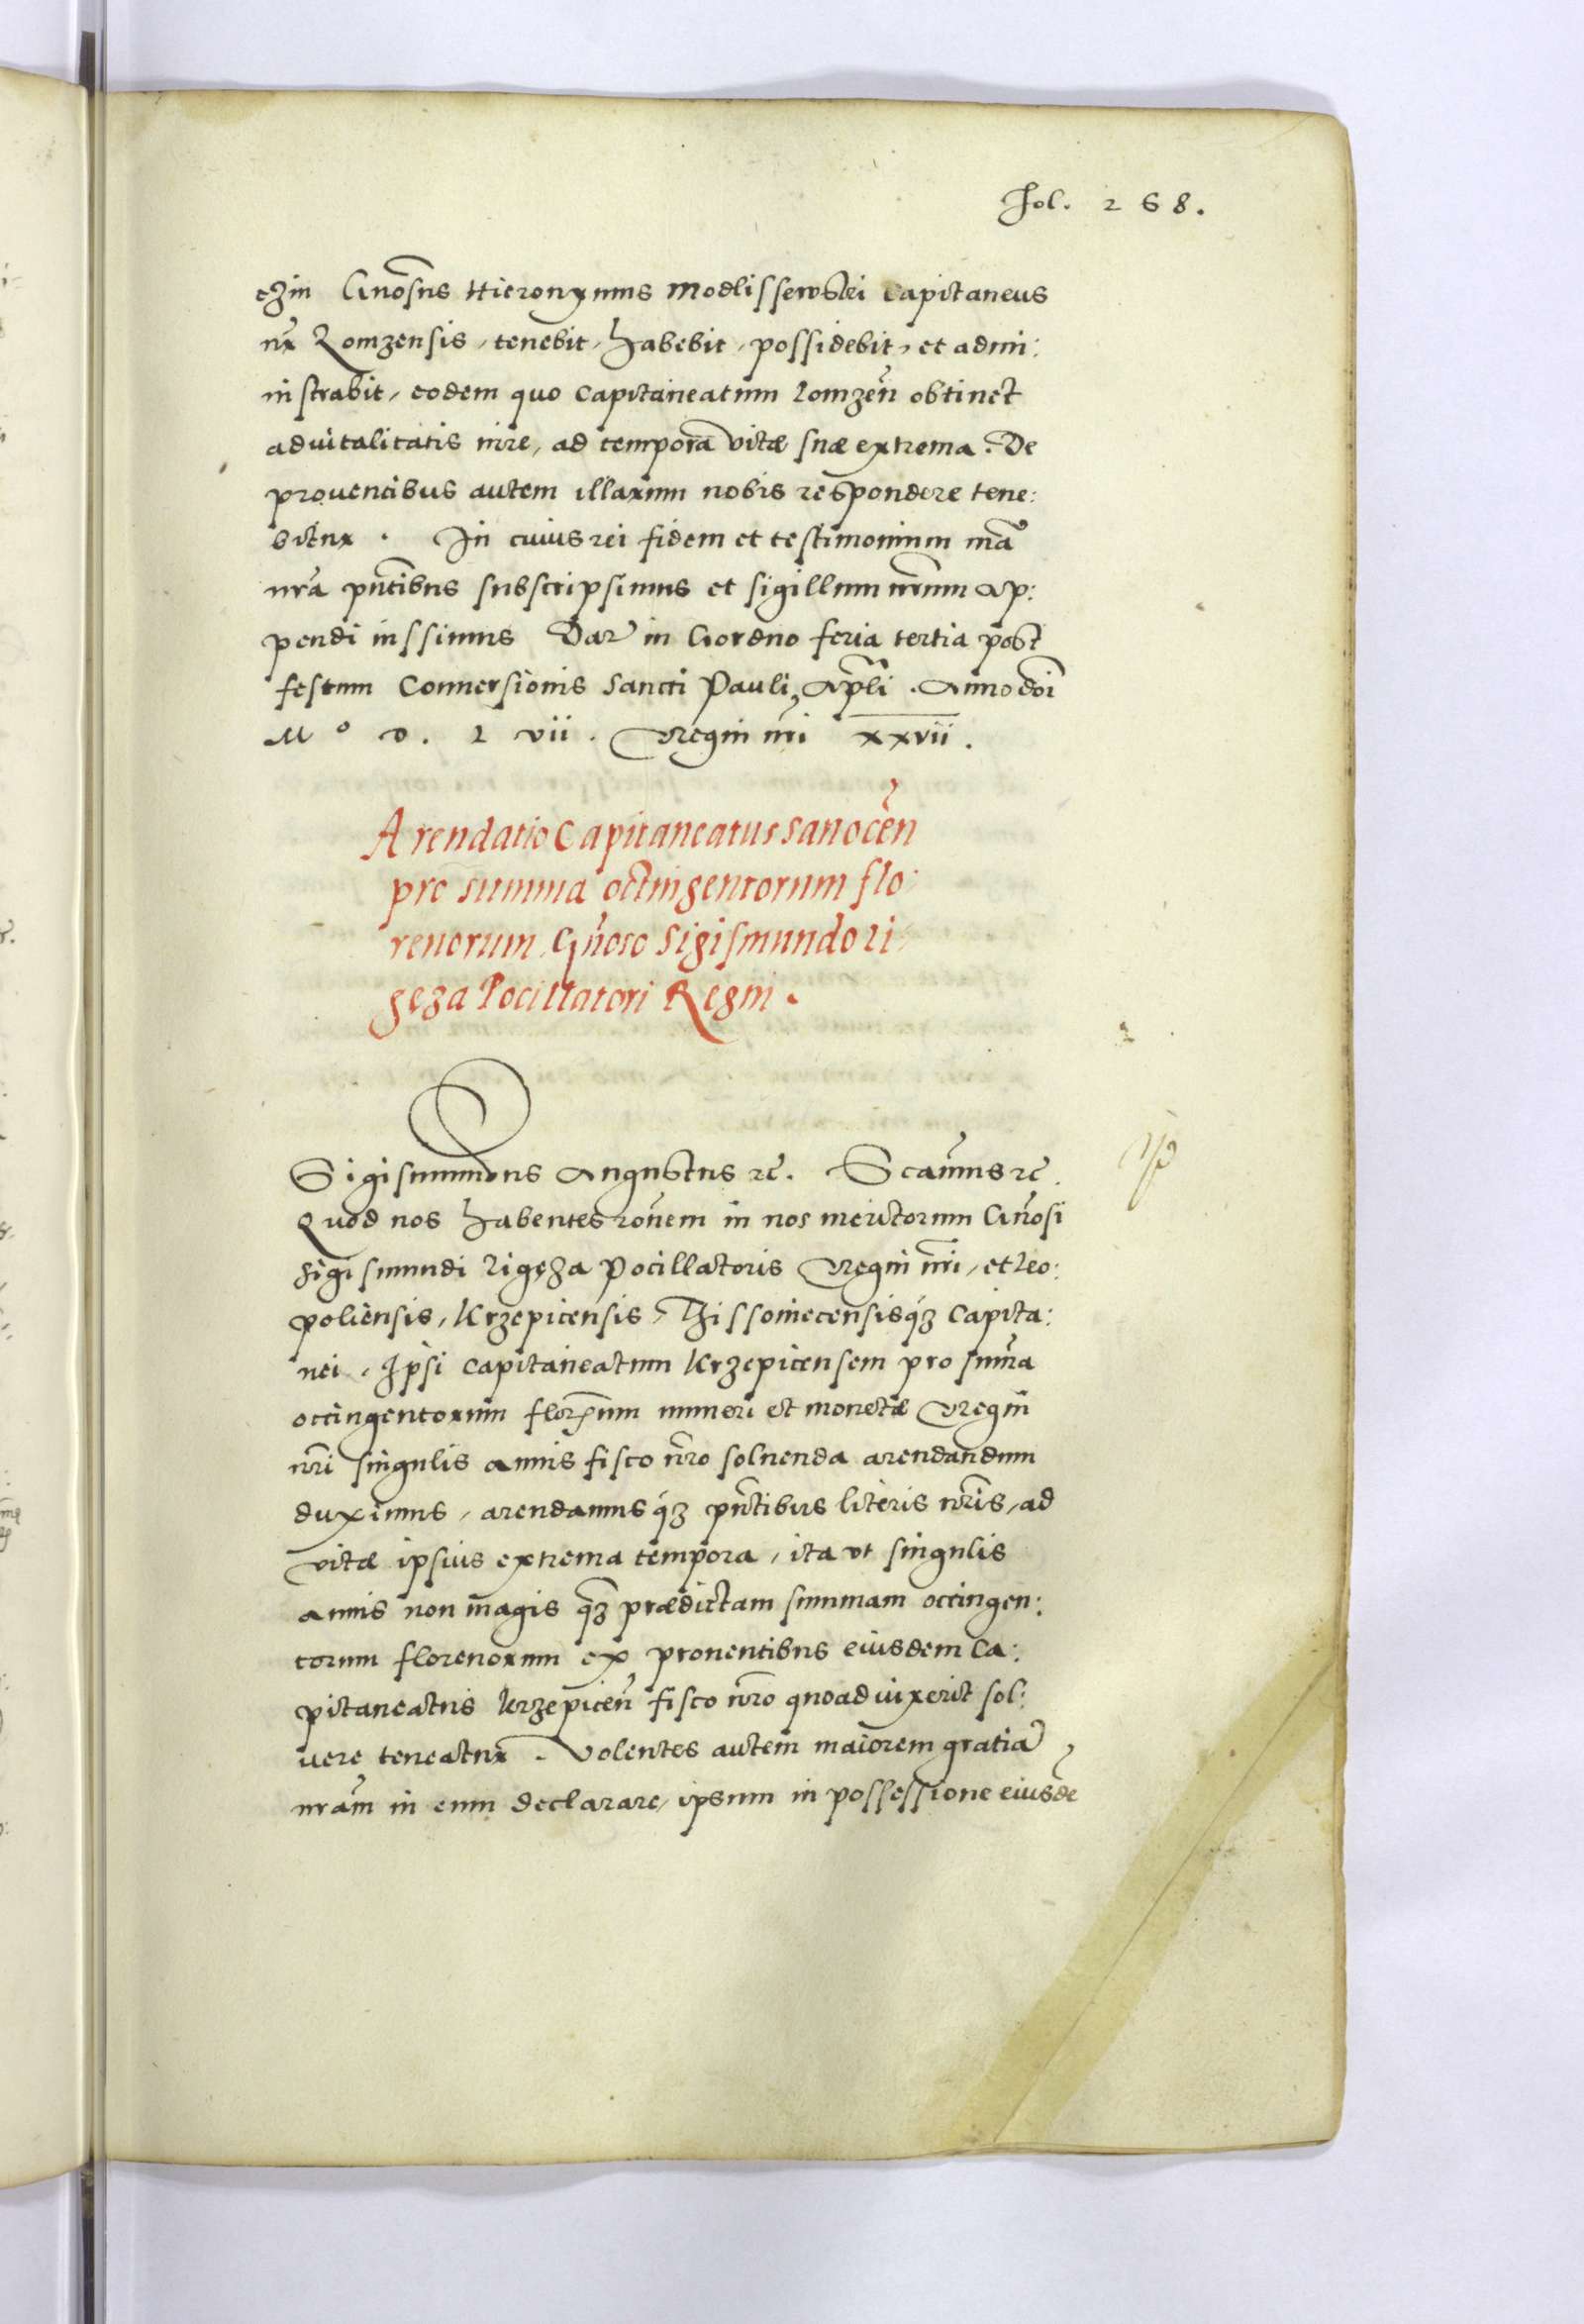 Fol. 268.
czin G̃nosus Hieronymus Modlissewskj Capitaneus
nr̃ Lomzensis, tenebit, habebit, possidebit, et admi:
nistrabit, eodem quo Capitaneatum Lomzen̄ obtinet
aduitalitatis iure, ad tempora vitæ suæ extrema. De
prouentibus autem illarum nobis respondere tene:
bitur. In cuius rei fidem et testimonium man̄
nr̄a pn̄tibus subscripsimus et sigillum nr̄um ap:
pendi iussimus Dat̄ in Grodno feria tertia post
festum Conuersionis Sancti Pauli Apl̄i. Anno doī
M° D. L vii. Regni nr̄i xxvii.
Arendatio Capitaneatus Sanocen̄
pro summa octingentorum flo:
renorum, Gn̄oso Sigismundo Li
geza Pocillatori Regni.
Sigismundus Augustus rc̄. S caūmus rc̄.
Quod nos habentes ron̄em in nos meritorum Gn̄osi
Sigismundi Ligęza Pocillatoris Regni nr̄i, et Leo:
poliensis, Krzepicensis, capita:
nei, Ipsi Capitaneatum Krzepicensem pro sum̄a
octingentorum florenum numeri et monetæ Regni
nr̄i singulis annis fisco nr̄o soluenda arendandum
duximus, arendamusq́ꝫ pn̄tibus literis nr̄is, ad
vitæ ipsius extrema tempora, ita vt singulis
annis non magis q̄ꝫ prædictam summam octingen:
torum florenorum ex prouentibus eiusdem Ca:
pitaneatus Krzepicen̄ fisco nr̄o quoad uixerit sol:
uere teneatur. Volentes autem maiorem gratiā
nr̄am in eum declarare, ipsum in possessione eiusdē